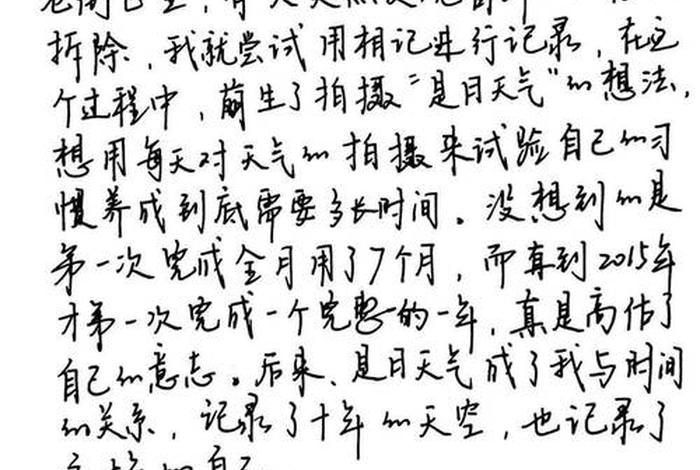 拆除，我就尝试用相记进行记录，在这
个过程中，萌生了拍摄“是日天气”的想法，
想用每天对天气的拍摄来试验自己的习
惯养成到底需要多长时间。没想到的是
第一次完成全月用了7个月，而直到2015年
才第一次完成一个完整的一年，真是高估了
自己的意志。后来，是日天气成了我与时间
的关系，记录了十年的天空，也记录了